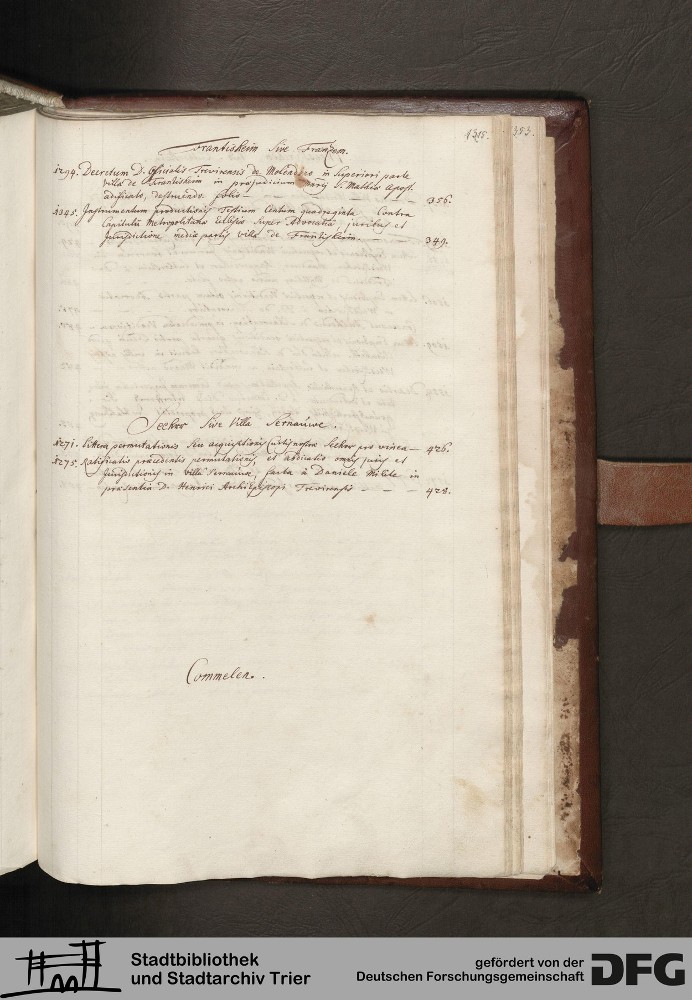 1315. 353.
Frantisheim Sive Franzem.
1294. Decretum D. Officialis Trevirensis de Molendino in Superiori parte
villa de Frantisheim in præjudicium S. Mathiæ Apost.
ædificato, destruendo. folio — 356.
1345. Instrumentum productionis Testium Centum quadraginta Contra
Capitulum Metropolitanæ Ecclesiæ Super Advocatia, juribus et
Jurisdictione mediæ partis villæ de Frantisheim. — 349.
Seckor Sive Villa Pernauwe.
1271. Littera permutationis seu acquisitionis Curtis nostræ Seckor pro vinea — 426.
1275. Ratificatio præcedentis permutationis, et abdicatio omnis juris et
Jurisdictionis in villa Pernauwe, facta à Daniele Milite in
præsentia D. Henrici Archiepiscopi Trevirensis — 428.
Commelen.
Stadtbibliothek
und Stadtarchiv Trier
gefördert von der
Deutschen Forschungsgemeinschaft
DFG